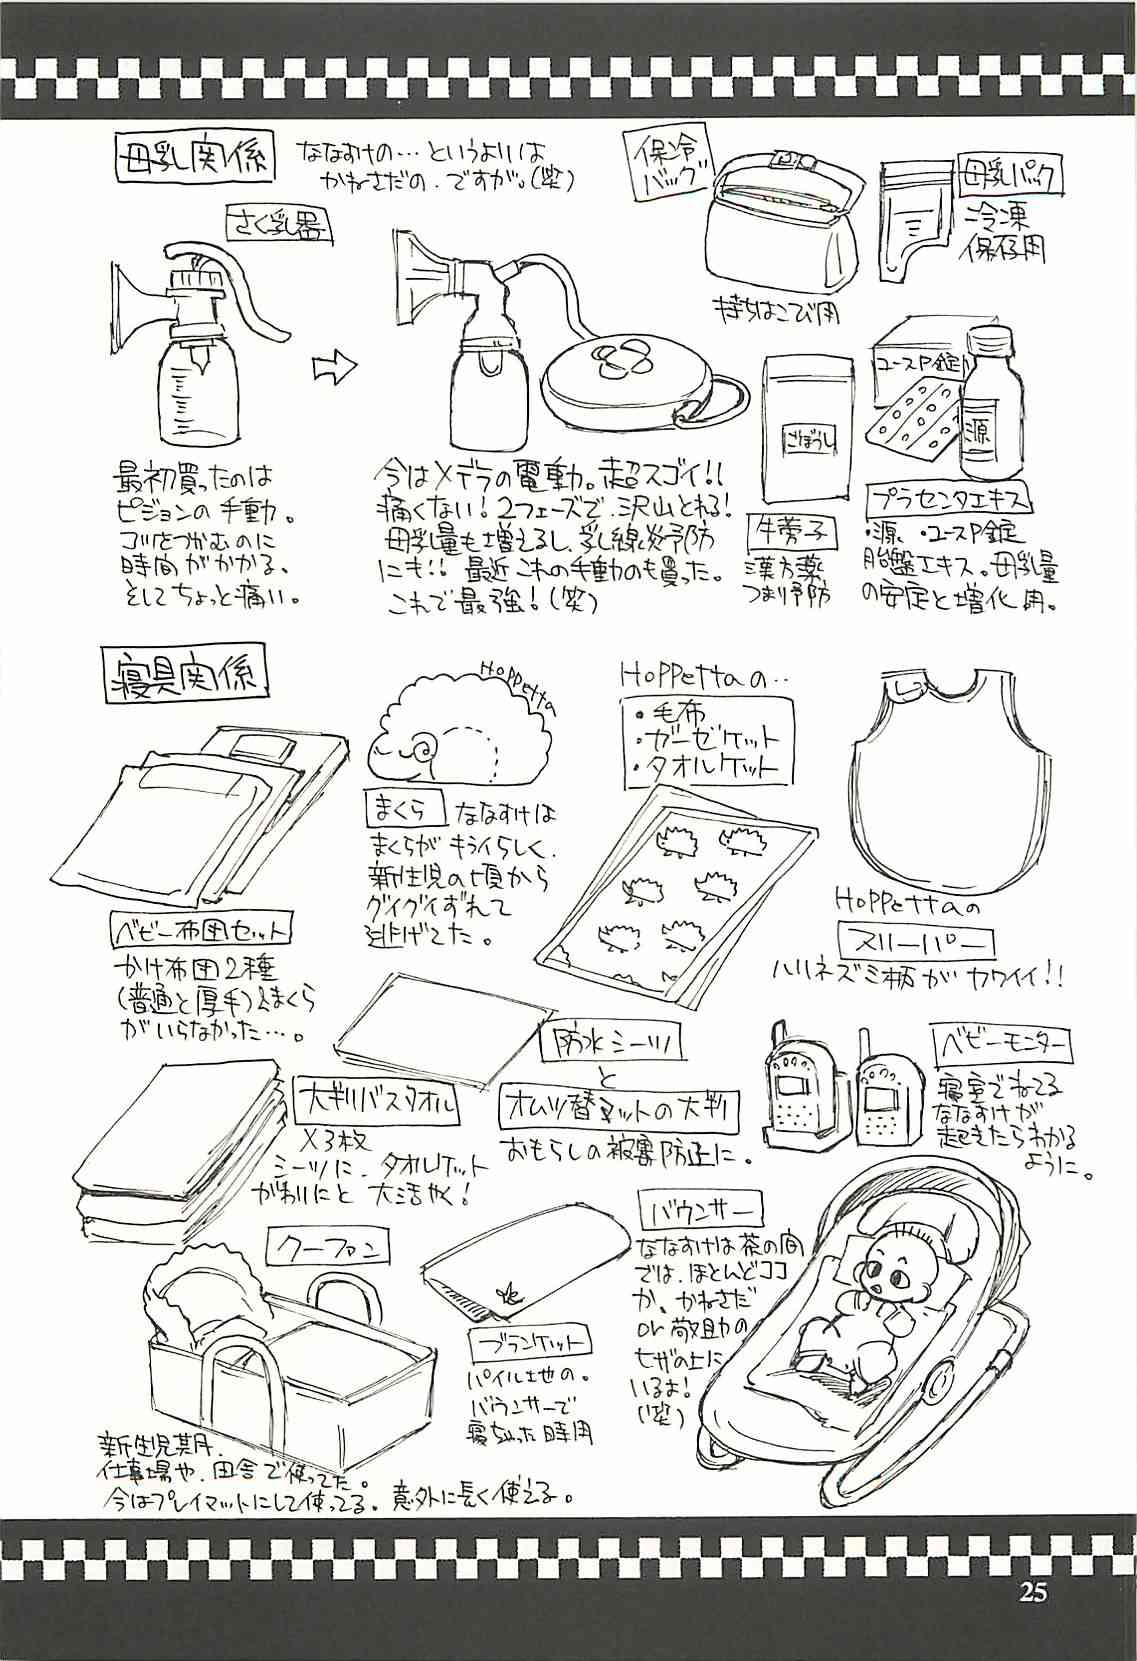 母乳関係
ななすけの…というよりは
かねさだの、ですが。(笑)
さく乳器
最初買ったのは
ピジョンの手動。
コツをつかむのに
時間がかかる、
そしてちょっと痛い。
今はメデラの電動。超スゴイ!!
痛くない!2フェーズで、沢山とれる!
母乳量も増えるし、乳線炎予防
にも!!最近これの手動のも買った。
これで最強!(笑)
保冷
バッグ
持ちはこび用
母乳パック
冷凍
保存用
ごぼうし
牛蒡子
漢方薬
つまり予防
ユースP錠
源
プラセンタエキス
・源、・ユースP錠
胎盤エキス。母乳量
の安定と増化用。
寝具関係
ベビー布団セット
かけ布団2種
(普通と厚手)&まくら
がいらなかった…。
Hoppetta
まくら ななすけは
まくらがキライらしく、
新生児の頃から
グイグイずれて
逃げてた。
HOPPEttaの‥
・毛布
・ガーゼケット
・タオルケット
HOPPEttaの
スリーパー
ハリネズミ柄がカワイイ!!
大判バスタオル
×3枚
シーツに、タオルケット
がわりにと大活やく!
防水シーツ
と
オムツ替マットの大判
おもらしの被害防止に。
ベビーモニター
寝室でねてる
ななすけが
起きたらわかる
ように。
クーファン
新生児期、
仕事場や、田舎で使ってた。
今はプレイマットにして使ってる。意外に長く使える。
ブランケット
パイル地の。
バウンサーで
寝ちゃった時用
バウンサー
ななすけは茶の間
では、ほとんどココ
か、かねさだ
or敬助の
ヒザの上に
いるよ!
(笑)
25